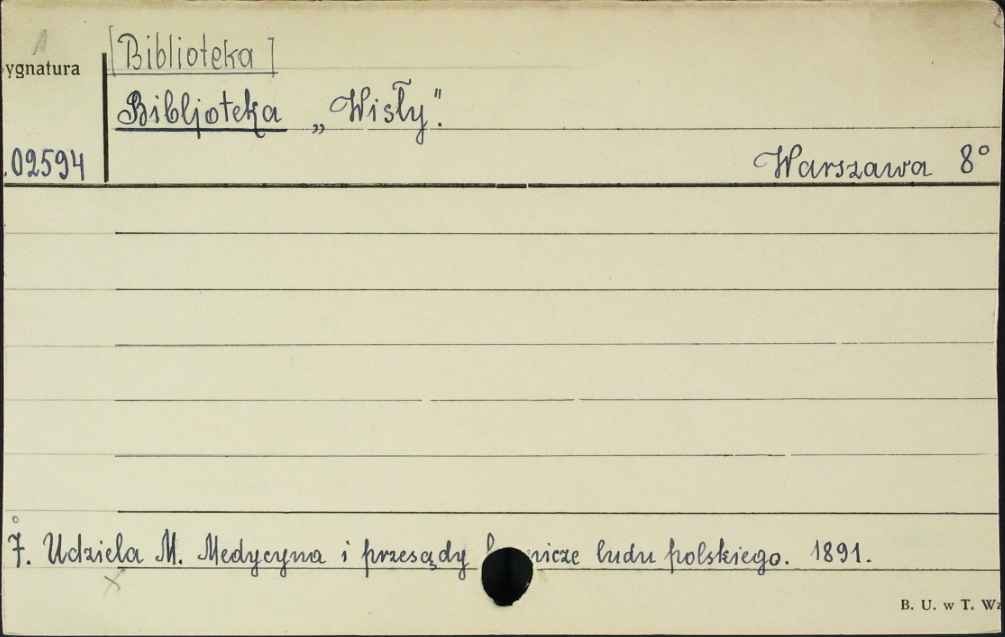 [Biblioteka]
ygnatura
Bibljoteka „Wisły".
.02594
Warszawa 8°
7. Udziela M. Medycyna i przesądy nicze ludu polskiego. 1891.
B. U. w T. Wz